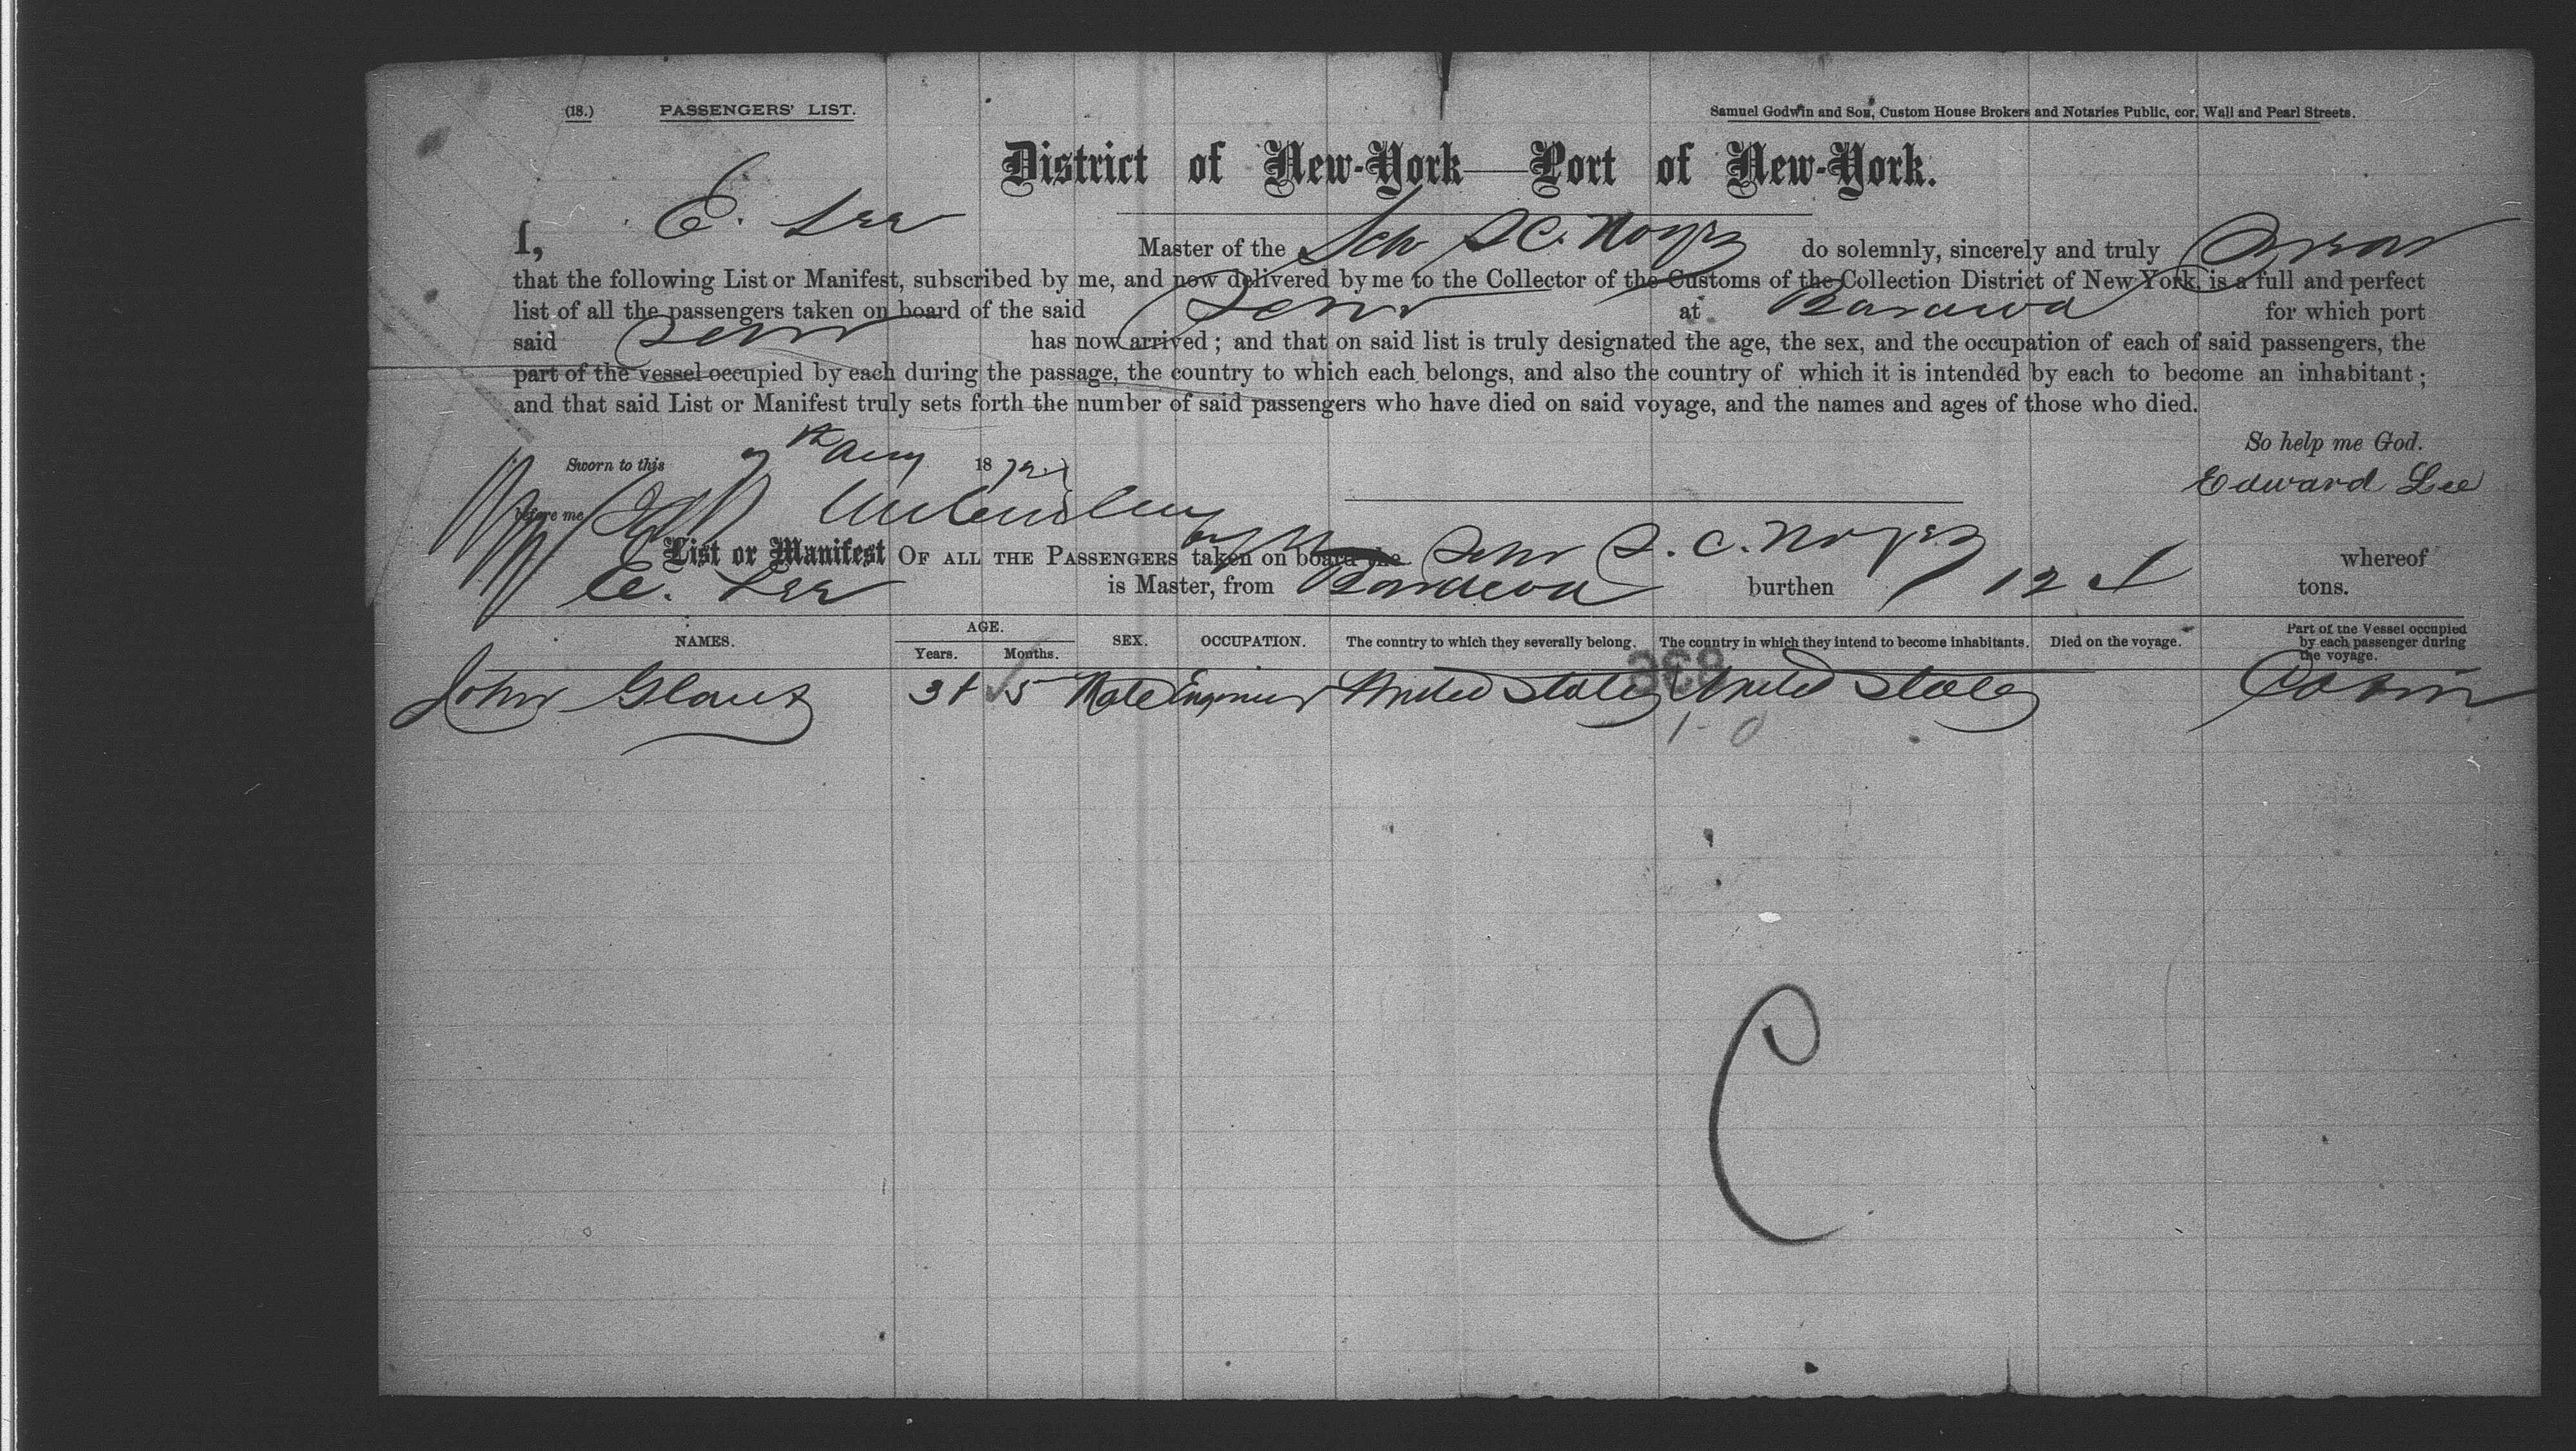 (18.) PASSENGERS' LIST. Samuel Godwin and Son, Custom House Brokers and Notaries Public, cor. Wall and Pearl Streets.
District of New-York—Port of New-York.
I, E. Lee Master of the Sch S C. Noyes do solemnly, sincerely and truly Swear
that the following List or Manifest, subscribed by me, and now delivered by me to the Collector of the Customs of the Collection District of New York, is a full and perfect
list of all the passengers taken on board of the said Schr at for which port
said Schr has now arrived; and that on said list is truly designated the age, the sex, and the occupation of each of said passengers, the
part of the vessel occupied by each during the passage, the country to which each belongs, and also the country of which it is intended by each to become an inhabitant;
and that said List or Manifest truly sets forth the number of said passengers who have died on said voyage, and the names and ages of those who died.
So help me God.
Sworn to this 7th Aug 1872
Edward Lee
before me
List or Manifest OF ALL THE PASSENGERS taken on board the Schr S. C. Noyes whereof
E. Lee is Master, from burthen tons.
NAMES. AGE. Years. Months. SEX. OCCUPATION. The country to which they severally belong. The country in which they intend to become inhabitants. Died on the voyage. Part of the Vessel occupied by each passenger during the voyage.
John 5 Male Engineer United States United States Cabin
C